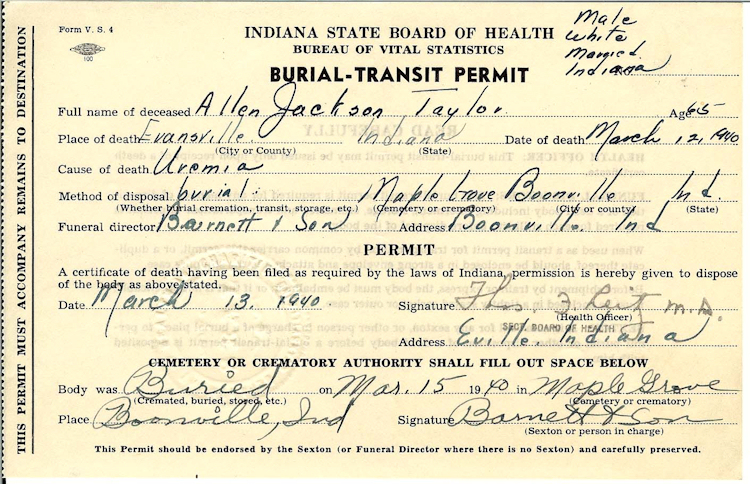 Form V. S. 4
100
INDIANA STATE BOARD OF HEALTH
BUREAU OF VITAL STATISTICS
BURIAL-TRANSIT PERMIT
Male
White
Married
Indiana
Full name of deceased Allen Jackson Taylor. Age 65
Place of death Evansville Indiana Date of death March 12, 1940
(City or County) (State)
Cause of death Uremia
Method of disposal burial. Maple Grove Boonville Ind.
(Whether burial cremation, transit, storage, etc.) (Cemetery or crematory) (City or county) (State)
Funeral director Barnett & Son Address Boonville Ind
PERMIT
A certificate of death having been filed as required by the laws of Indiana, permission is hereby given to dispose
of the body as above stated.
Date March 13. 1940. Signature Thos. M.D.
(Health Officer)
SECT. BOARD OF HEALTH
Address E'ville. Indiana
CEMETERY OR CREMATORY AUTHORITY SHALL FILL OUT SPACE BELOW
Body was Buried on Mar. 15 1940 in Maple Grove
(Cremated, buried, stored, etc.) (Cemetery or crematory)
Place Boonville, Ind Signature Barnett & Son
(Sexton or person in charge)
This Permit should be endorsed by the Sexton (or Funeral Director where there is no Sexton) and carefully preserved.
THIS PERMIT MUST ACCOMPANY REMAINS TO DESTINATION